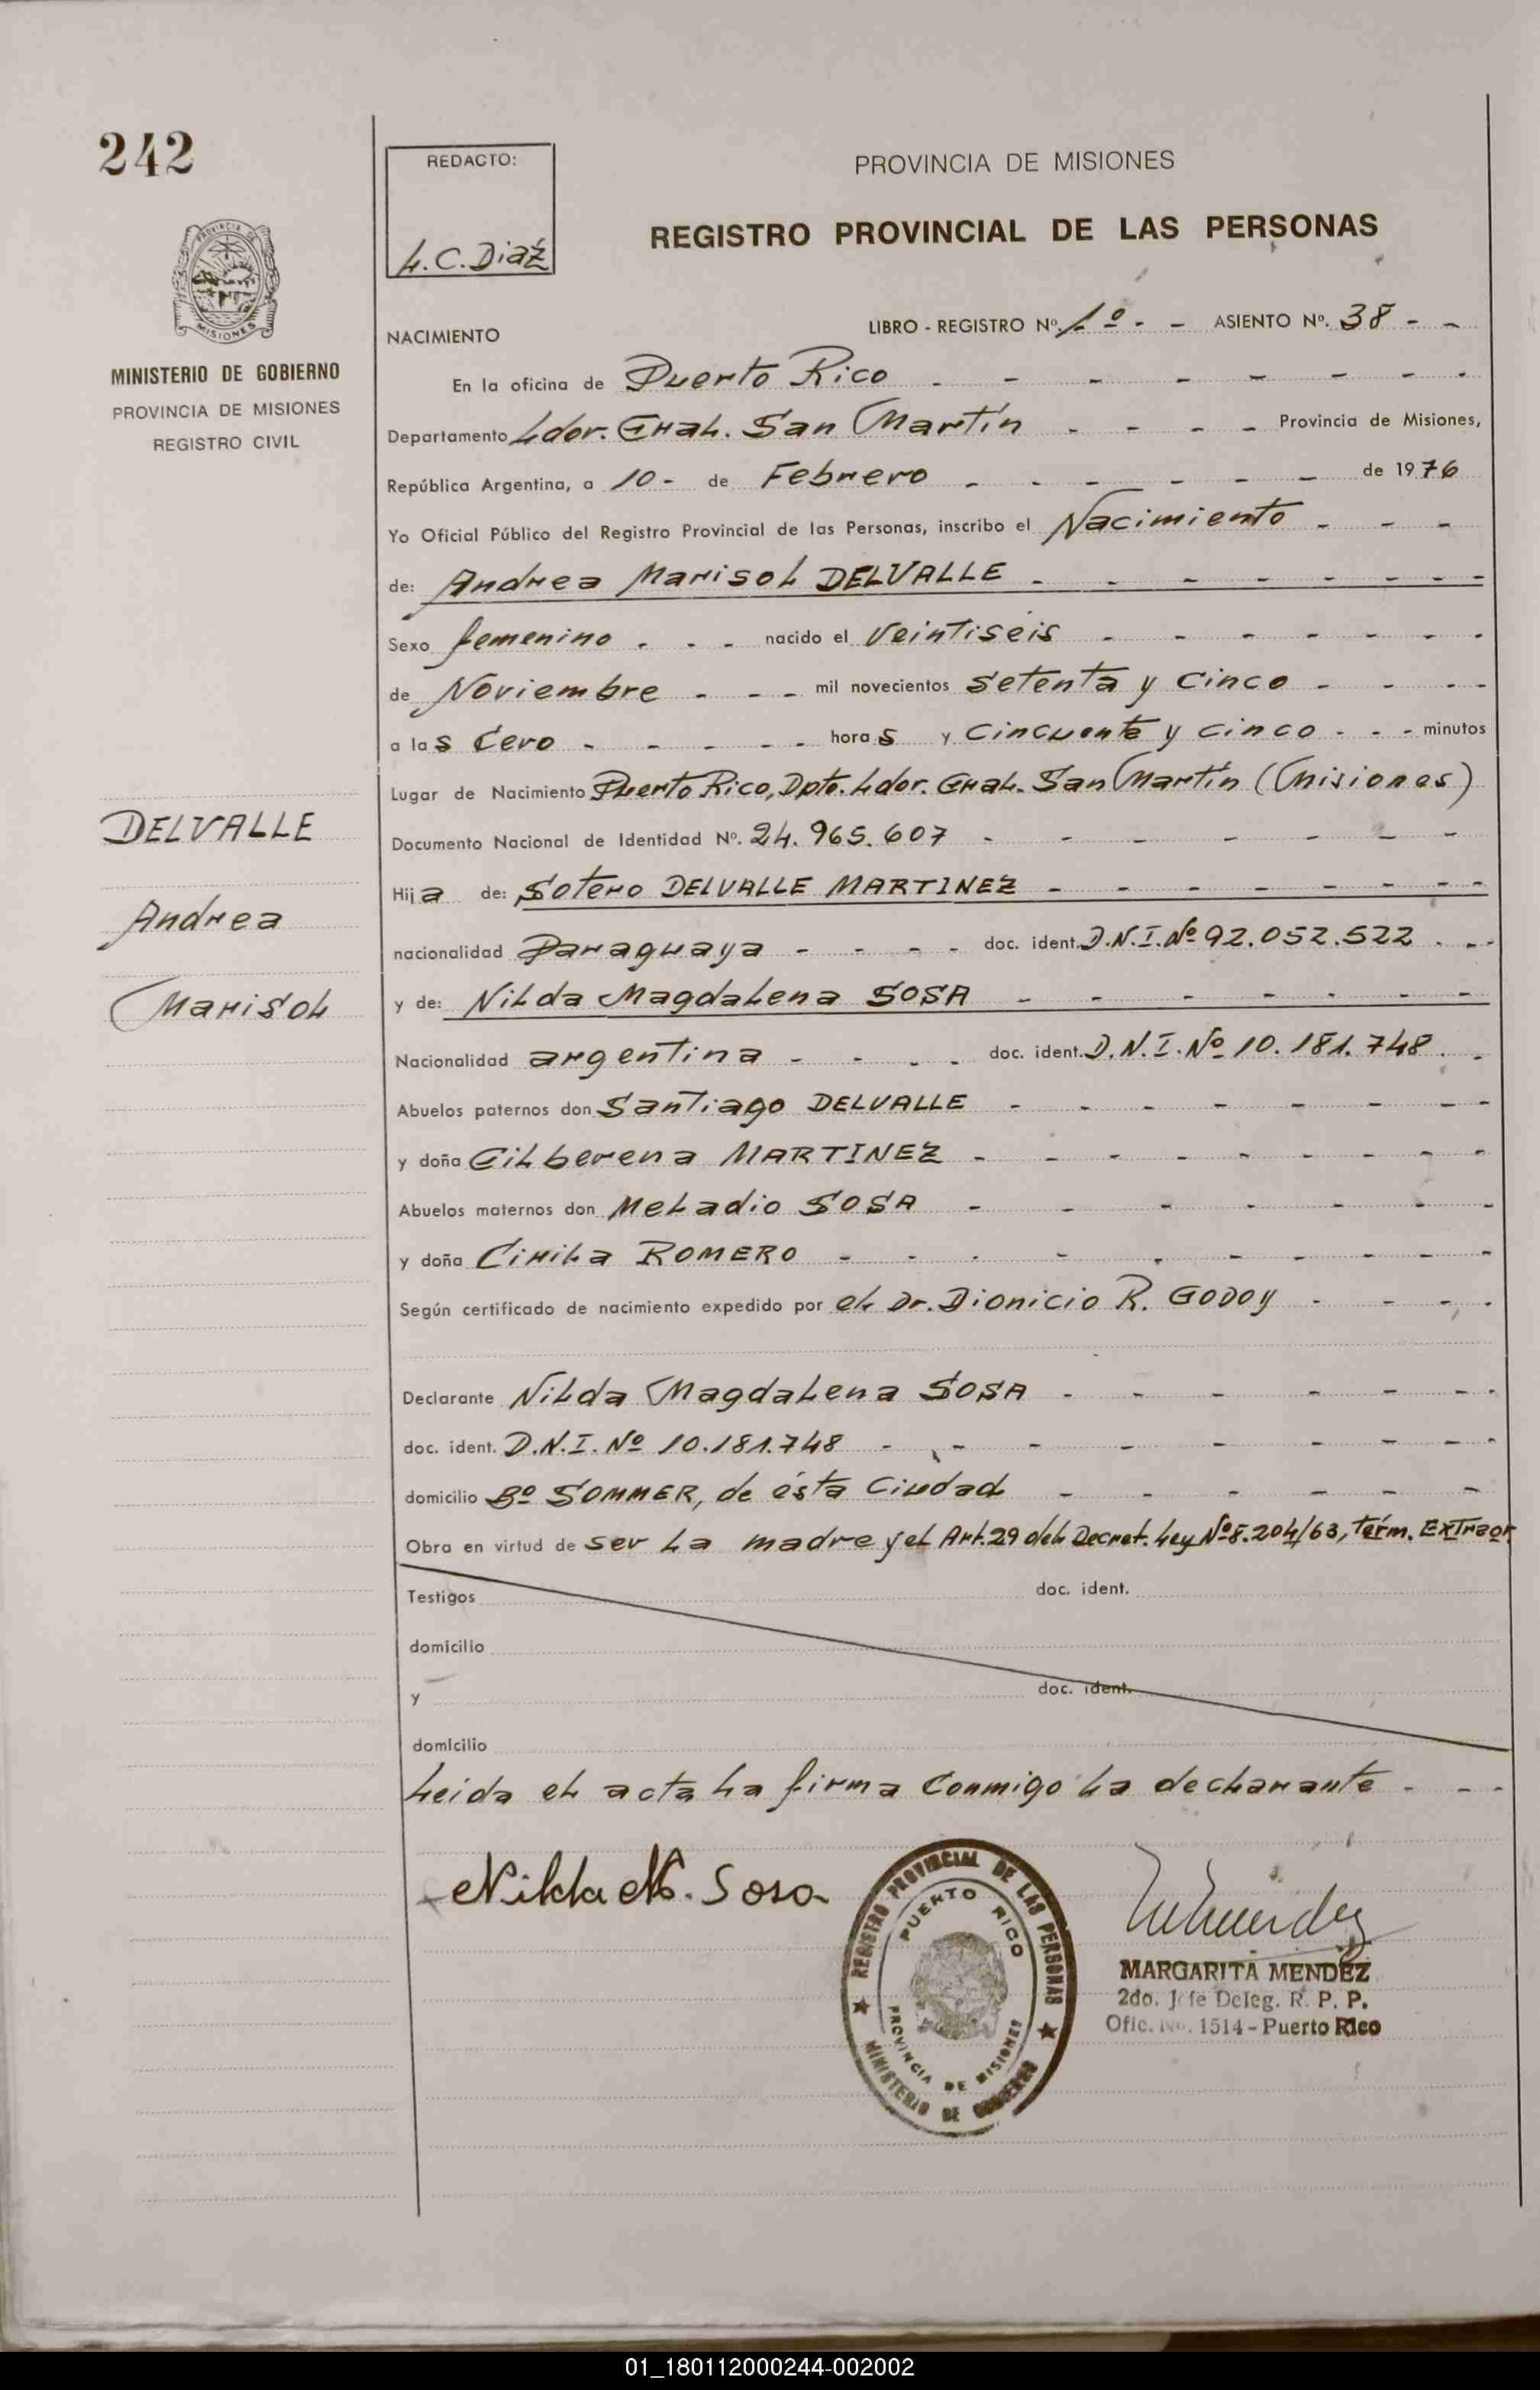 242
REDACTO:
L.C.Diaz
PROVINCIA DE MISIONES
REGISTRO PROVINCIAL DE LAS PERSONAS
PROVINCIA DE
MISIONES
MINISTERIO DE GOBIERNO
PROVINCIA DE MISIONES
REGISTRO CIVIL
NACIMIENTO
LIBRO - REGISTRO Nº. 1º - - ASIENTO Nº. 38 - -
En la oficina de Puerto Rico - - - - - - - -
Departamento Ldor. Gral. San Martín - - - - Provincia de Misiones,
República Argentina, a 10 - de Febrero - - - - - - de 1976
Yo Oficial Público del Registro Provincial de las Personas, inscribo el Nacimiento - - -
de: Andrea Marisol DELVALLE - - - - - - - -
Sexo femenino - - - nacido el Veintiséis - - - - - -
de Noviembre - - - mil novecientos setenta y cinco - - - -
a las cero - - - - - horas y cincuenta y cinco - - - minutos
Lugar de Nacimiento Puerto Rico, Dpto. Ldor. Gral. San Martín (Misiones)
Documento Nacional de Identidad Nº. 24.965.607 - - - - - - -
Hija de: Sotero DELVALLE MARTINEZ - - - - - - - -
nacionalidad Paraguaya - - - - doc. ident. D.N.I.Nº 92.052.522 - - -
y de: Nilda Magdalena SOSA - - - - - - -
Nacionalidad argentina - - - - doc. ident. D.N.I.Nº 10.181.748 - -
Abuelos paternos don Santiago DELVALLE - - - - - - - -
y doña Gilberena MARTINEZ - - - - - - - - -
Abuelos maternos don Meladio SOSA - - - - - - -
y doña Cirila ROMERO - - - - - - - - -
Según certificado de nacimiento expedido por el Dr. Dionicio R. GODOY - - - -
Declarante Nilda Magdalena SOSA - - - - - - -
doc. ident. D.N.I. Nº 10.181.748 - - - - - - - -
domicilio Bº SOMMER, de ésta Ciudad - - - - - -
Obra en virtud de ser la madre y el Art.29 del Decret. Ley Nº8.204/63, Térm. Extraor.
Testigos doc. ident.
domicilio
y doc. ident.
domicilio
Leida el acta la firma conmigo la declarante - - -
Nilda M. Sosa
REGISTRO PROVINCIAL DE LAS PERSONAS
MINISTERIO DE GOBIERNO
PUERTO RICO
PROVINCIA DE MISIONES
MARGARITA MENDEZ
2do. Jefe Deleg. R. P. P.
Ofic. No. 1514 - Puerto Rico
DELVALLE
Andrea
Marisol
01_180112000244-002002